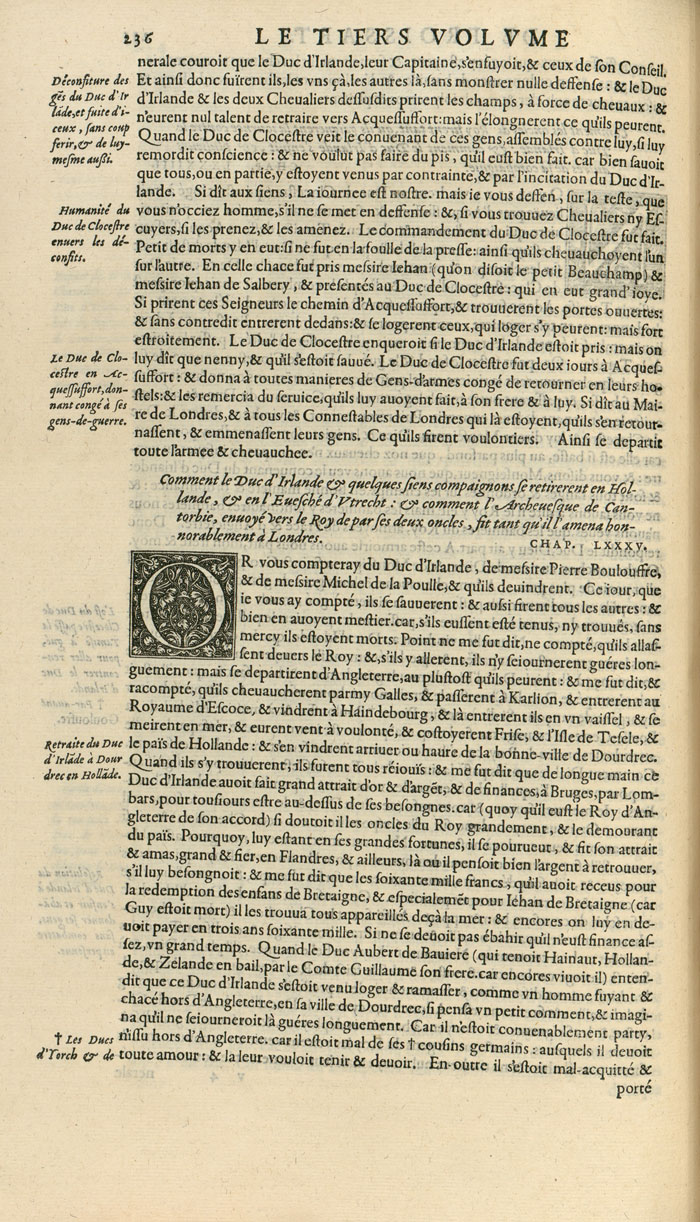 236 LE TIERS VOLVME
nerale couroit que le Duc d'Irlande, leur Capitaine, s'enfuyoit, & ceux de son Conseil.
Déconfiture des
gẽs du Duc d'Ir
lãde, et fuite d'i-
ceux, sans coup
ferir, & de luy-
mesme aussi.
Et ainsi donc fuïrent ils, les vns çà, les autres là, sans monstrer nulle deffense: & le Duc
d'Irlande & les deux Cheualiers dessusdits prirent les champs, à force de cheuaux: &
n'eurent nul talent de retraire vers Acquessuffort: mais l'élongnerent ce qu'ils peurent.
Quand le Duc de Clocestre veit le conuenant de ces gens, assemblés contre luy, si luy
remordit conscience: & ne voulut pas faire du pis, qu'il eust bien fait. car bien sauoit
que tous, ou en partie, y estoyent venus par contrainte, & par l'incitation du Duc d'Ir-
lande. Si dît aux siens, La iournee est nostre. mais ie vous deffen, sur la teste, que
Humanité du
Duc de Clocestre
enuers les dé-
confits.
vous n'occiez homme, s'il ne se met en deffense: &, si vous trouuez Cheualiers ny Es-
cuyers, si les prenez, & les amenez. Le commandement du Duc de Clocestre fut fait.
Petit de morts y en eut: si ne fut en la foulle de la presse: ainsi qu'ils cheuauchoyent l'un
sur l'autre. En celle chace fut pris messire Iehan (qu'on disoit le petit Beauchamp) &
messire Iehan de Salbery, & presentés au Duc de Clocestre: qui en eut grand' ioye.
Si prirent ces Seigneurs le chemin d'Acquessuffort, & trouuerent les portes ouuertes:
& sans contredit entrerent dedans: & se logerent ceux, qui loger s'y peurent: mais fort
estroitement. Le Duc de Clocestre enqueroit si le Duc d'Irlande estoit pris: mais on
Le Duc de Clo-
cestre en Ac-
quessuffort, don-
nant congé à ses
gens-de-guerre.
luy dit que nenny, & qu'il s'estoit sauué. Le Duc de Clocestre fut deux iours à Acques-
suffort: & donna à toutes manieres de Gens-d'armes congé de retourner en leurs ho-
stels: & les remercia du seruice, qu'ils luy auoyent fait, à son frere & à luy. Si dît au Mai-
re de Londres, & à tous les Connestables de Londres qui là estoyent, qu'ils s'en retour-
nassent, & emmenassent leurs gens. Ce qu'ils firent voulontiers. Ainsi se departit
toute l'armee & cheuauchee.
Comment le Duc d'Irlande & quelques siens compaignons se retirerent en Hol-
lande, & en l'Euesché d'Vtrecht: & comment l'Archeuesque de Can-
torbie, enuoyé vers le Roy de par ses deux oncles, fit tant qu'il l'amena hon-
norablement à Londres. CHAP. LXXXV.
OR vous compteray du Duc d'Irlande, de messire Pierre Boulouffre,
& de messire Michel de la Poulle, & qu'ils deuindrent. Ce iour, que
ie vous ay compté, ils se sauuerent: & aussi firent tous les autres: &
bien en auoyent mestier. car, s'ils eussent esté tenus, ny trouués, sans
mercy ils estoyent morts. Point ne me fut dit, ne compté, qu'ils allas-
sent deuers le Roy: &, s'ils y allerent, ils n'y seiournerent guéres lon-
guement: mais se departirent d'Angleterre, au plustost qu'ils peurent: & me fut dit, &
racompté, qu'ils cheuaucherent parmy Galles, & passerent à Karlion, & entrerent au
Royaume d'Escoce, & vindrent à Haindebourg, & là entrerent ils en vn vaissel, & se
meirent en mer, & eurent vent à voulonté, & costoyerent Frise, & l'Isle de Tesele, &
Retraite du Duc
d'Irlãde à Dour
drec en Hollãde.
le païs de Hollande: & s'en vindrent arriuer ou haure de la bonne-ville de Dourdrec.
Quand ils s'y trouuerent, ils furent tous réiouïs: & me fut dit que de longue main ce
Duc d'Irlande auoit fait grand attrait d'or & d'argẽt, & de finances, à Bruges, par Lom-
bars, pour tousiours estre au-dessus de ses besongnes. car (quoy qu'il eust le Roy d'An-
gleterre de son accord) si doutoit il les oncles du Roy grandement, & le demourant
du païs. Pourquoy, luy estant en ses grandes fortunes, il se pourueut, & fit son attrait
& amas, grand & fier, en Flandres, & ailleurs, là ou il pensoit bien l'argent à retrouuer,
s'il luy besongnoit: & me fut dit que les soixante mille francs, qu'il auoit receus pour
la redemption des enfans de Bretaigne, & especialemẽt pour Iehan de Bretaigne (car
Guy estoit mort) il les trouua tous appareillés deçà la mer: & encores on luy en de-
uoit payer en trois ans soixante mille. Si ne se deuoit pas ébahir qu'il n'eust finance as-
sez, vn grand temps. Quand le Duc Aubert de Bauiere (qui tenoit Hainaut, Hollan-
de, & Zelande en bail, par le Comte Guillaume son frere. car encores viuoit il) enten-
dit que ce Duc d'Irlande s'estoit venu loger & ramasser, comme vn homme fuyant &
chacé hors d'Angleterre, en sa ville de Dourdrec, si pensa vn petit comment, & imagi-
na qu'il ne seiourneroit là guéres longuement. Car il n'estoit conuenablement party,
† Les Ducs
d'Yorch & de
n'issu hors d'Angleterre. car il estoit mal de ses † cousins germains: ausquels il deuoit
toute amour: & la leur vouloit tenir & deuoir. En outre il s'estoit mal-acquitté &
porté